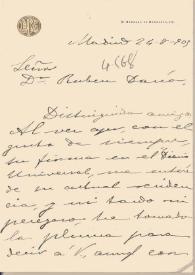 Madrid 24-8-905
4568
Señor
Dn. Ruben Dario.
Distinguido amigo
Al ver ayer, con el
gusto de siempre,
su firma en el
Universal, me enteré
de su actual residencia,
y ni tardo ni
perezoso, he tomado
la pluma para
decir á V. aunq. con